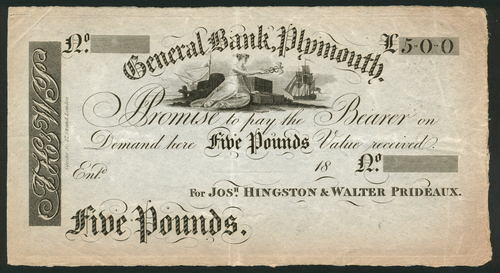 No.
General Bank, Plymouth.
£5-0-0
I Promise to pay the Bearer on
Demand here Five Pounds Value received.
18 No.
Entd.
For Josh. Hingston & Walter Prideaux.
Five Pounds.